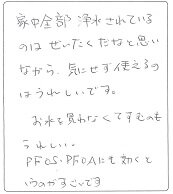 家中全部 浄水されている
のは ぜいたくだなと思い
ながら、気にせず使えるの
はうれしいです。
お水を買わなくてすむのも
うれしい。
PFOS・PFOAにも効くと
いうのがすごいです